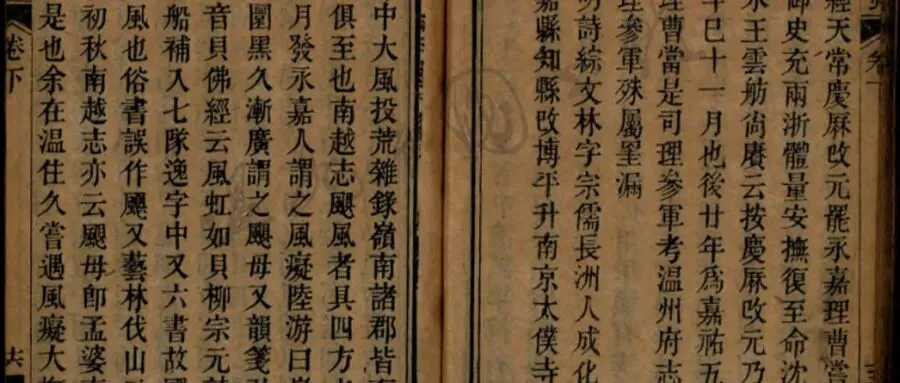 經天常慶厤改元罷永嘉理曹嘗
御史充兩浙體量安撫復至命沈
水王雲舫尙賡云按慶厤改元乃
年巳十一月也後廿年爲嘉祐五
理曹當是司理參軍考温州府志
理參軍殊屬罣漏
明詩綜文林字宗儒長洲人成化
嘉縣知縣改博平升南京太僕寺
中大風投荒雜錄嶺南諸郡皆
俱至也南越志颶風者具四方
月發永嘉人謂之風癡陸游曰
圍黑久漸廣謂之颶母又韻箋
音貝佛經云風虹如貝柳宗元
船補入七隊逸字中又六書故
風也俗書誤作颶又藝林伐山
初秋南越志亦云颶母卽孟婆
是也余在温住久嘗遇風癡大
卷下 六